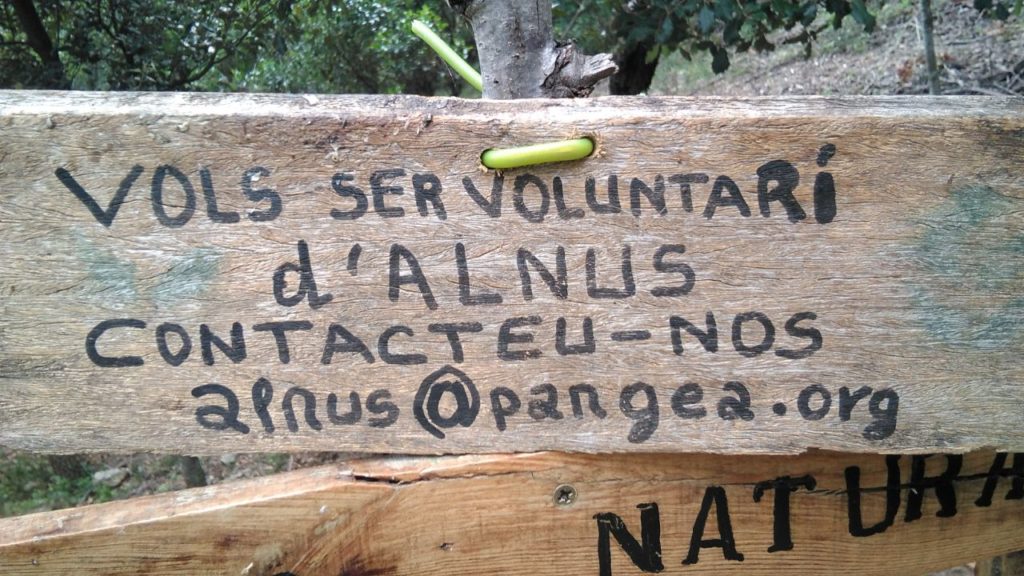 VOLS SER VOLUNTARÍ
d'ALNUS
CONTACTEU-NOS
alnus@pangea.org
NATURA